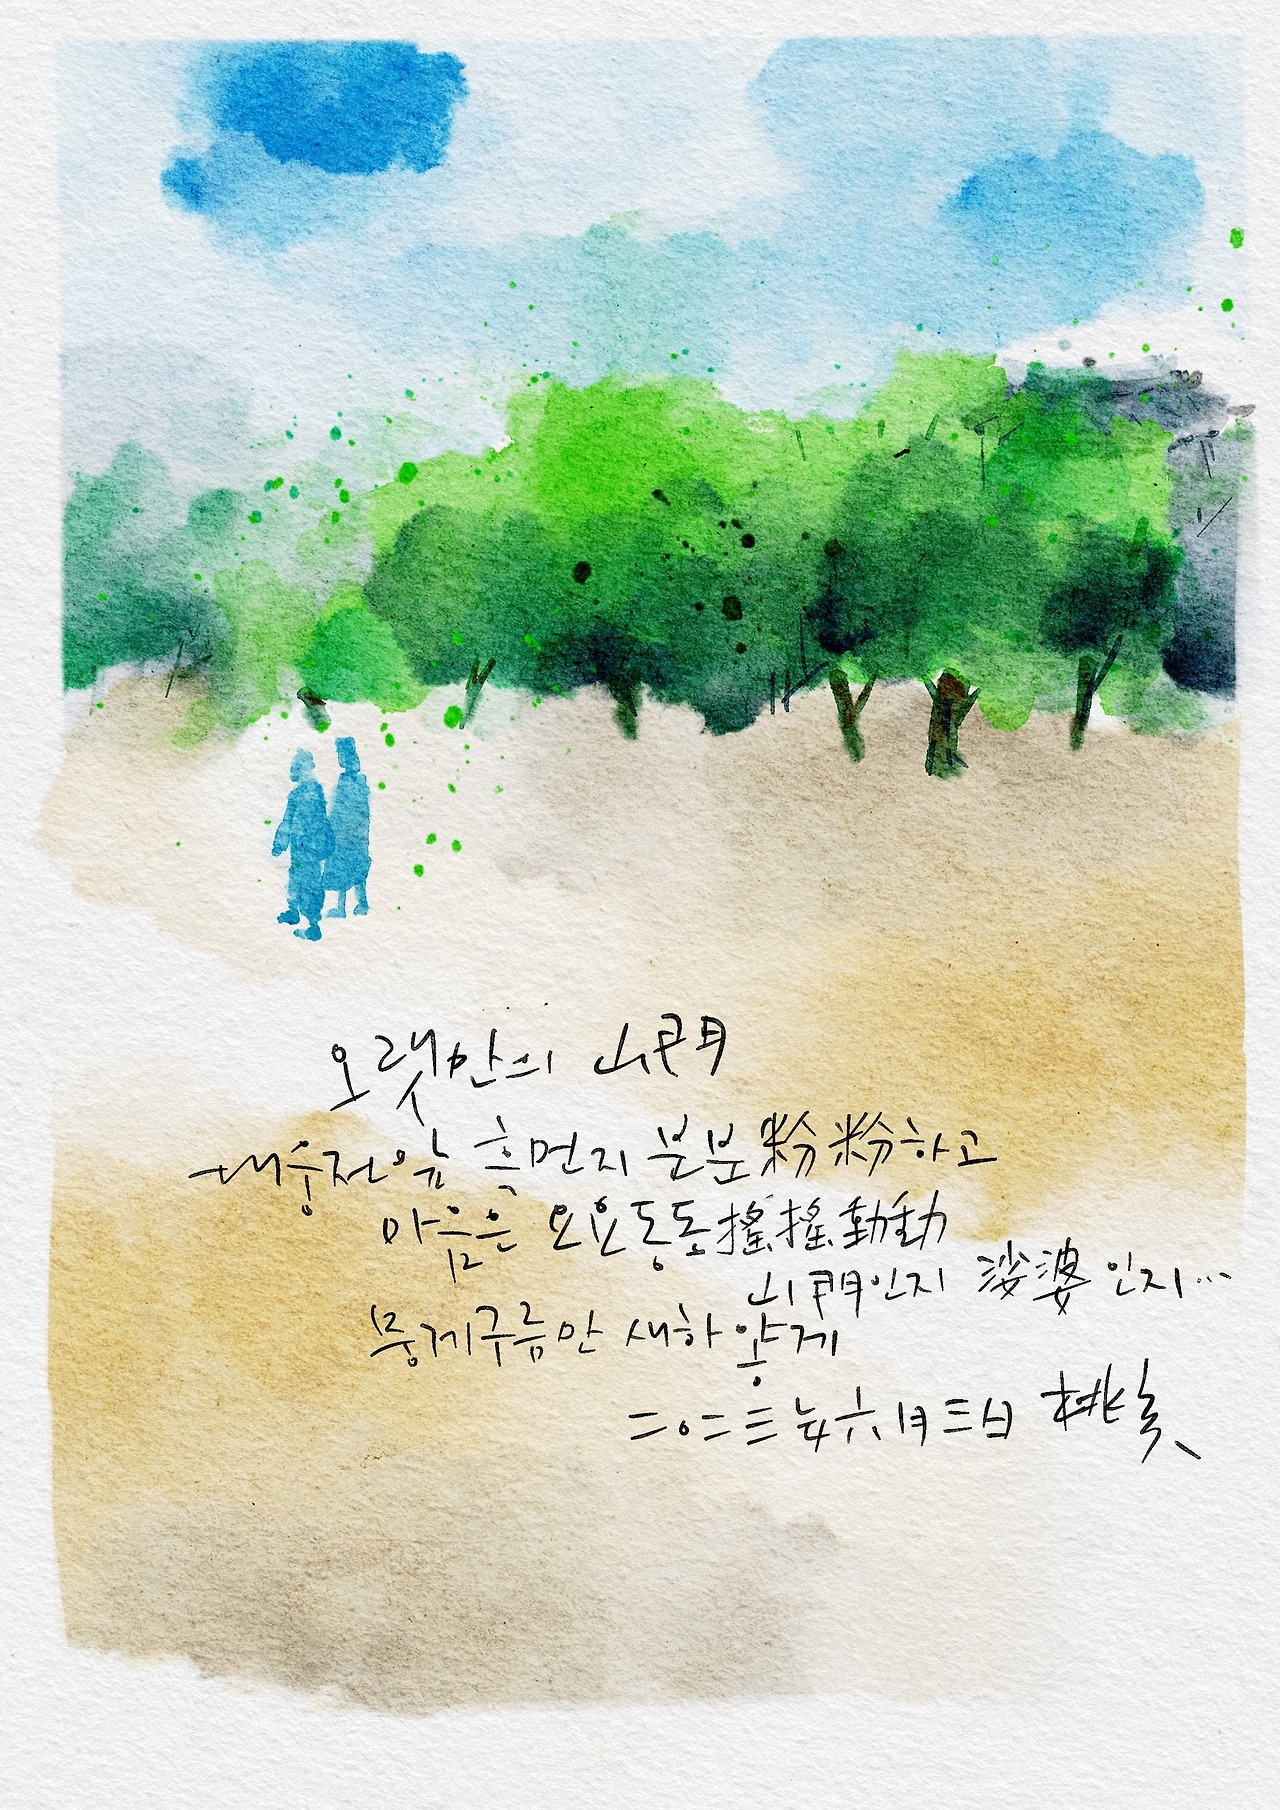 오랫만의 山門
대웅전앞 흑먼지 분분粉粉하고
마음은 요요동동搖搖動動
山門인지 娑婆인지...
뭉게구름만 새하얗게
二〇二三年六月三日 桃